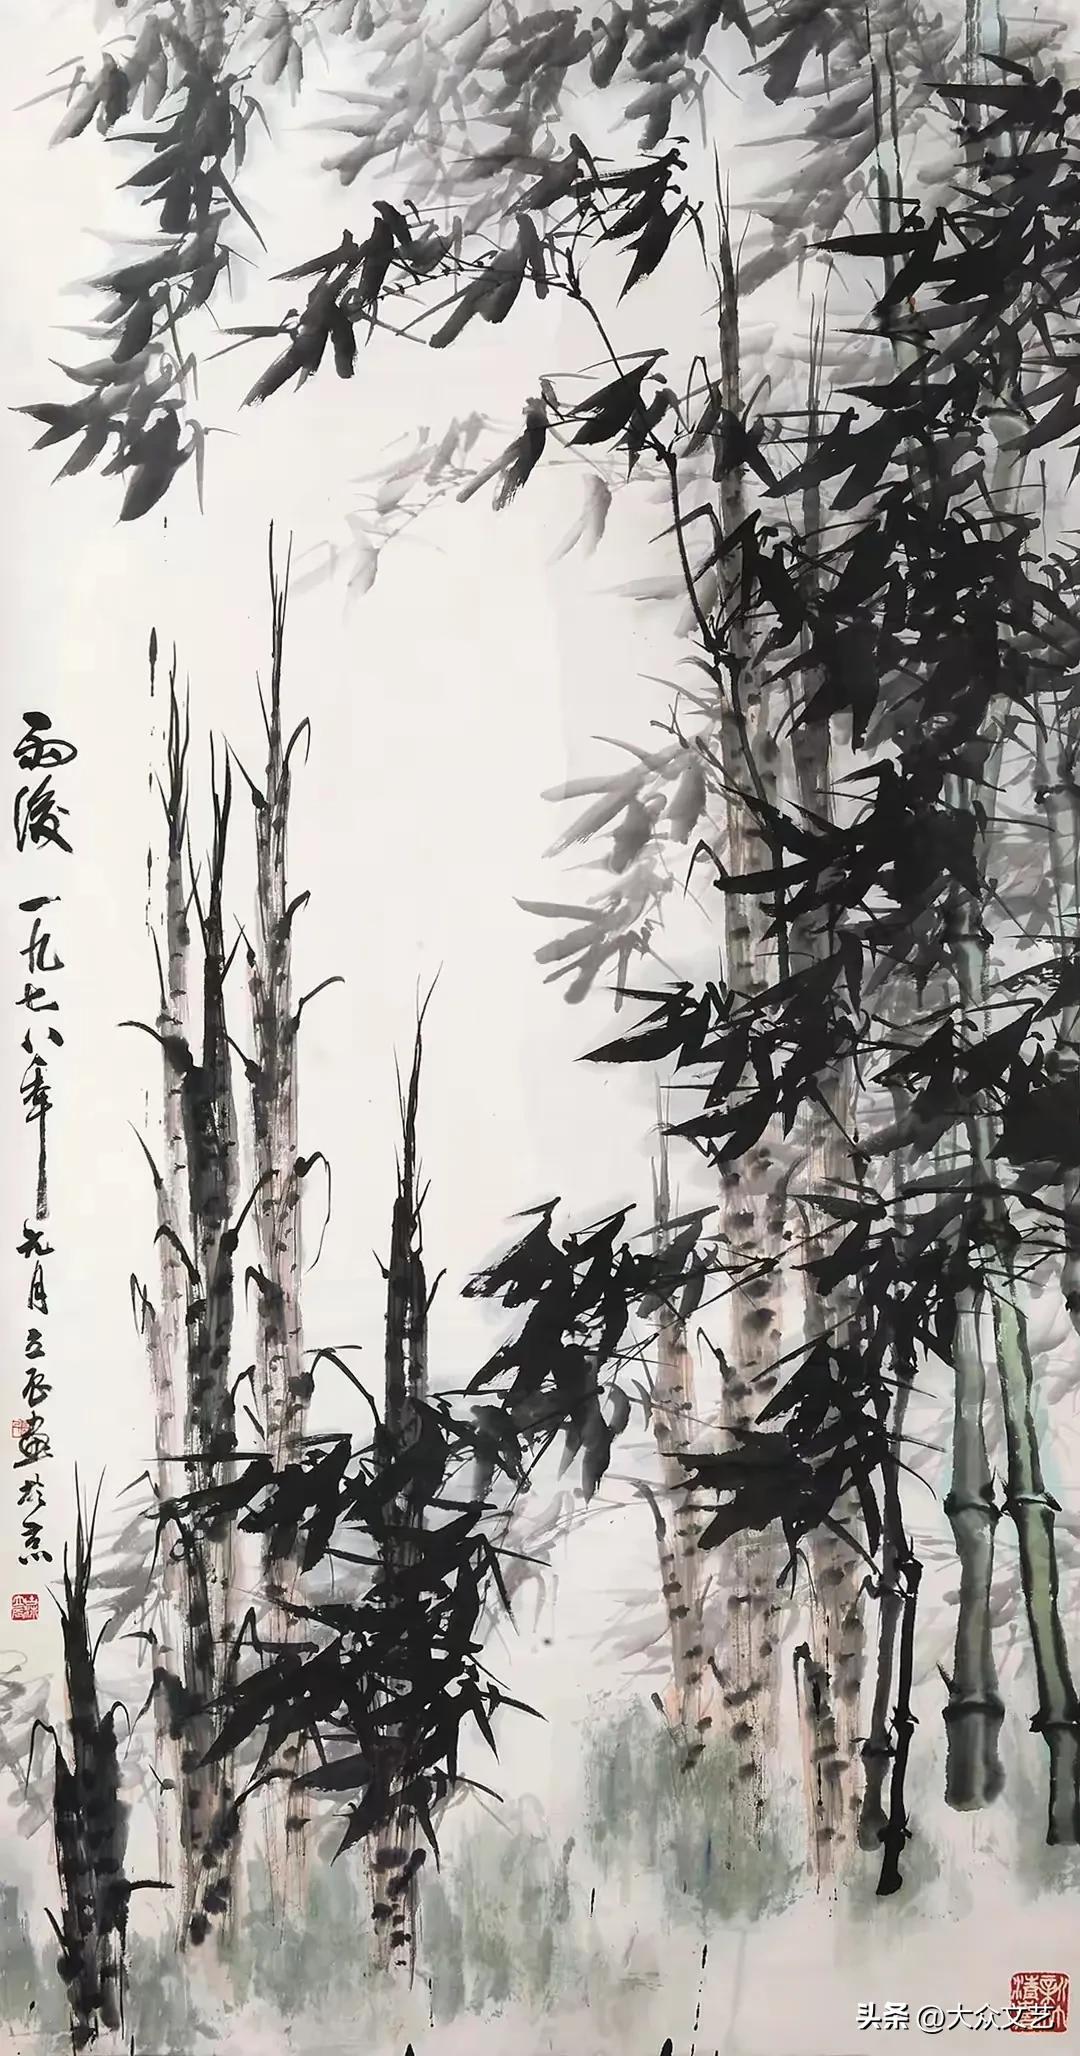 雨後 一九七八年元月立辰画於京
头条 @大众文艺